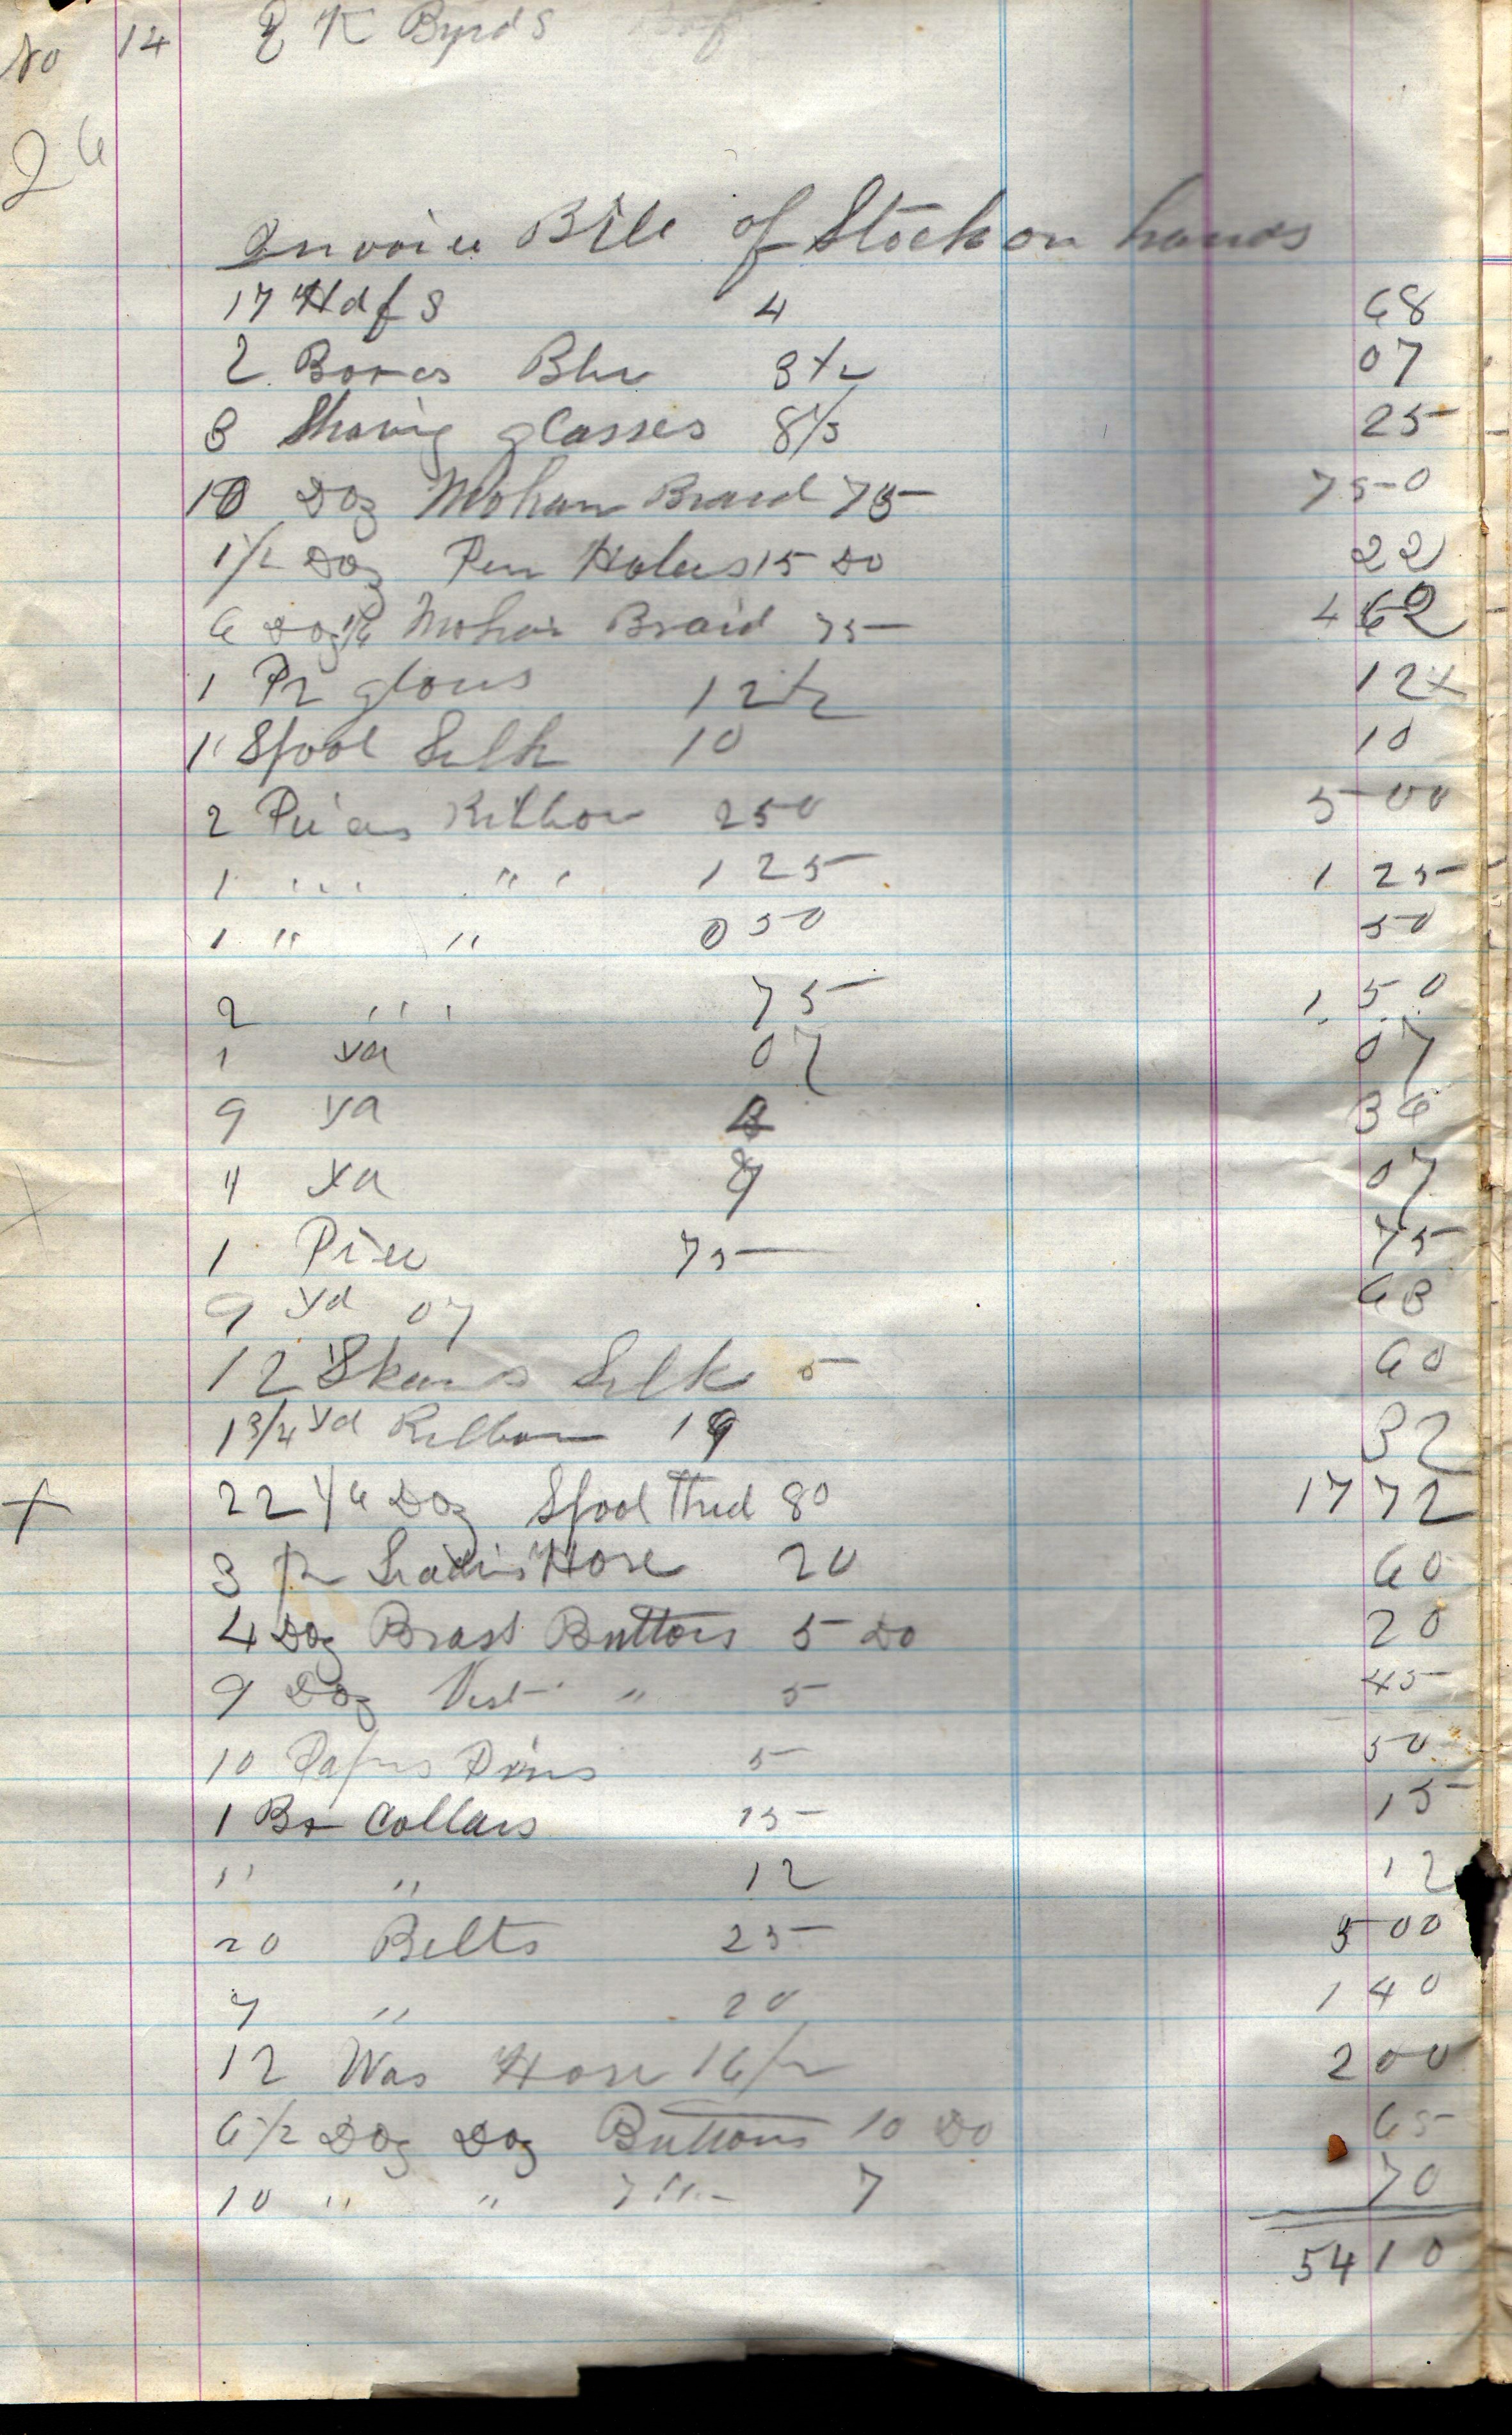 No 14 E K Byrds
26
Invoice Bill of Stock on hands
17 Hdfs 4 68
2 Boxes Blu 3 1/2 07
3 Shaving glasses 8 1/3 25
10 Doz Mohair Braid 75 7 50
1 1/2 Doz Pen Holders 15 Do 22
6 Doz 1/6 Mohair Braid 75 4 62
1 Pr gloves 12 1/2 12
1 Spool Silk 10 10
2 Pieces Ribbon 250 5 00
1 " " 1 25 1 25
1 " " 0 50 50
2 " 75 1 50
1 yd 07 07
9 yd 4 36
yd 07
1 Piece 75 75
9 yd 07 63
12 Skeins Silk 5 60
1 3/4 yd Ribbon 19 32
+ 22 1/6 Doz Spool Thred 80 17 72
3 pr Ladies Hose 20 60
4 Doz Brass Buttons 5 Do 20
9 Doz Vest " 5 45
10 Papers Pins 5 50
1 Bx Collars 15 15
" " 12 12
20 Belts 25 5 00
7 " 20 1 40
12 Was Hose 16/ 2 00
6 1/2 Doz Doz Buttons 10 Do 65
10 " " 7 70
54 10